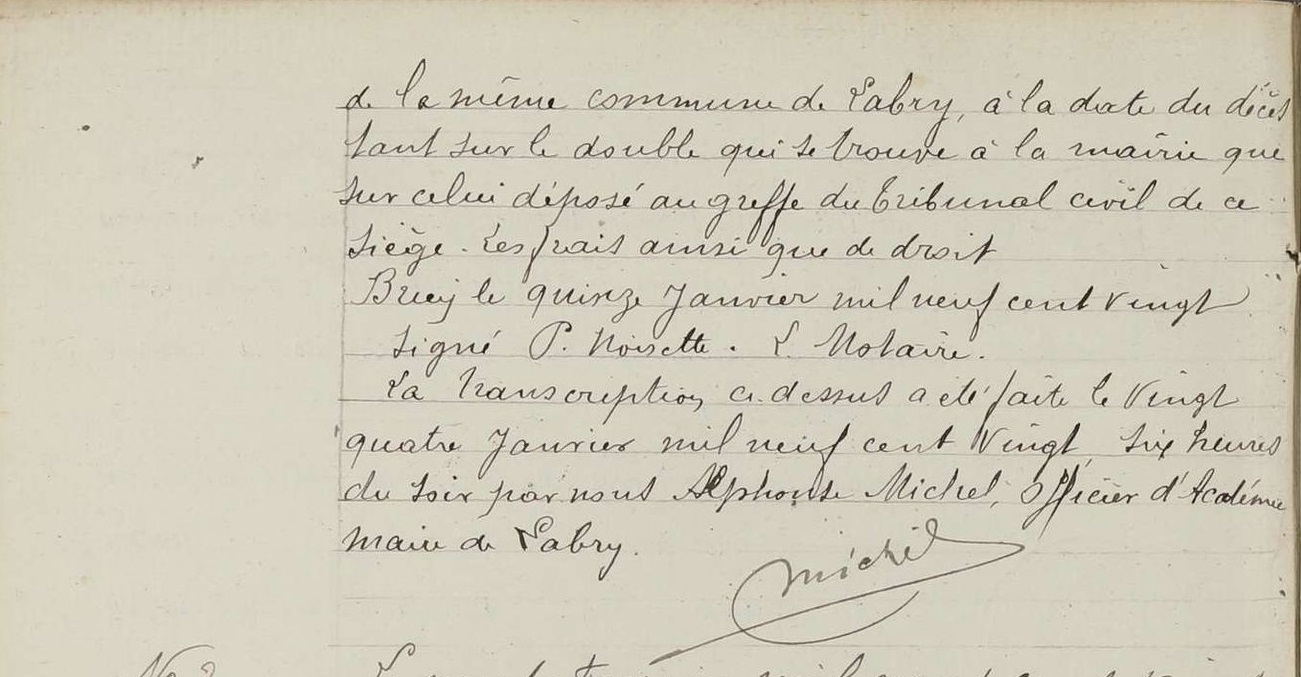 de la même commune de Labry, à la date du décès
tant sur le double qui se trouve à la mairie que
sur celui déposé au greffe du Tribunal civil de ce
siège. Les frais ainsi que de droit
Briey le quinze Janvier mil neuf cent vingt
Signé P. Noisette. L. Notaire.
La transcription ci-dessus a été faite le Vingt
quatre Janvier mil neuf cent Vingt, six heures
du soir par nous Alphonse Michel, Officier d'Académie
maire de Labry.
Michel